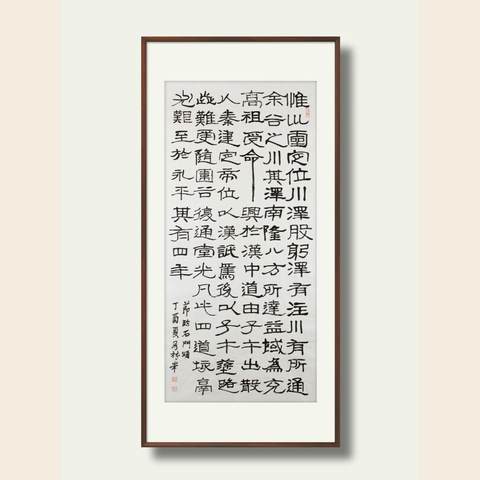 惟巛靈定位川澤股躬澤有注川有所通
余谷之川其澤南隆八方所達益域為充
高祖受命興於漢中道由子午出散
入秦建定帝位以漢詆焉後以子午塗路
歮難更隨圍谷復通堂光凡此四道垓鬲
尤艱至於永平其有四年
節臨石門頌
丁酉夏月